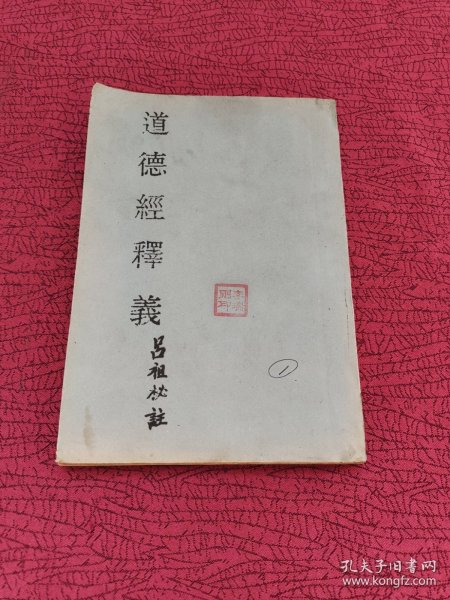 道德經釋義
呂祖秘註
1
孔夫子旧书网
www.kongfz.com